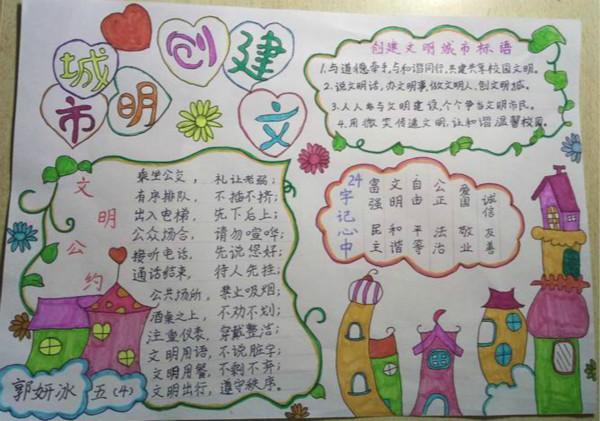 创建
文明
城市
创建文明城市标语
1.与道德牵手,与和谐同行,共建共享校园文明。
2.说文明话,办文明事,做文明人,创文明城。
3.人人参与文明建设,个个争当文明市民。
4.用微笑传递文明,让和谐温馨校园。
文明公约
乘坐公交,礼让老弱;
有序排队,不插不挤;
出入电梯,先下后上;
公众场合,请勿喧哗;
接听电话,先说您好;
通话结束,待人先挂;
公共场所,禁止吸烟;
酒桌之上,不劝不划;
注重仪表,穿戴整洁;
文明用语,不说脏字;
文明用餐,不剩不弃;
文明出行,遵守秩序。
24字记心中
富强 民主
文明 和谐
自由 平等
公正 法治
爱国 敬业
诚信 友善
郭妍冰 五(4)